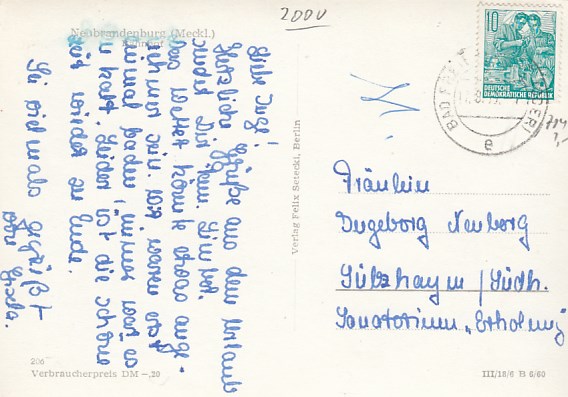 2000
Neubrandenburg (Meckl.)
10
DEUTSCHE
DEMOKRATISCHE REPUBLIK
BAD
e
Liebe Inge!
Herzliche Grüße aus dem Urlaub
sendet Dir
Das Wetter könnte etwas ange-
nehmer sein. Wir waren erst
einmal baden, immer war es
zu kalt. Leider ist die schöne
Zeit wieder zu Ende.
Sei vielmals gegrüßt
von Gisela.
Verlag Felix Setecki, Berlin
Fräulein
Ingeborg Neuberg
Sülzhayn / Südh.
Sanatorium „Erholung"
206
Verbraucherpreis DM –,20
III/18/6 B 6/60